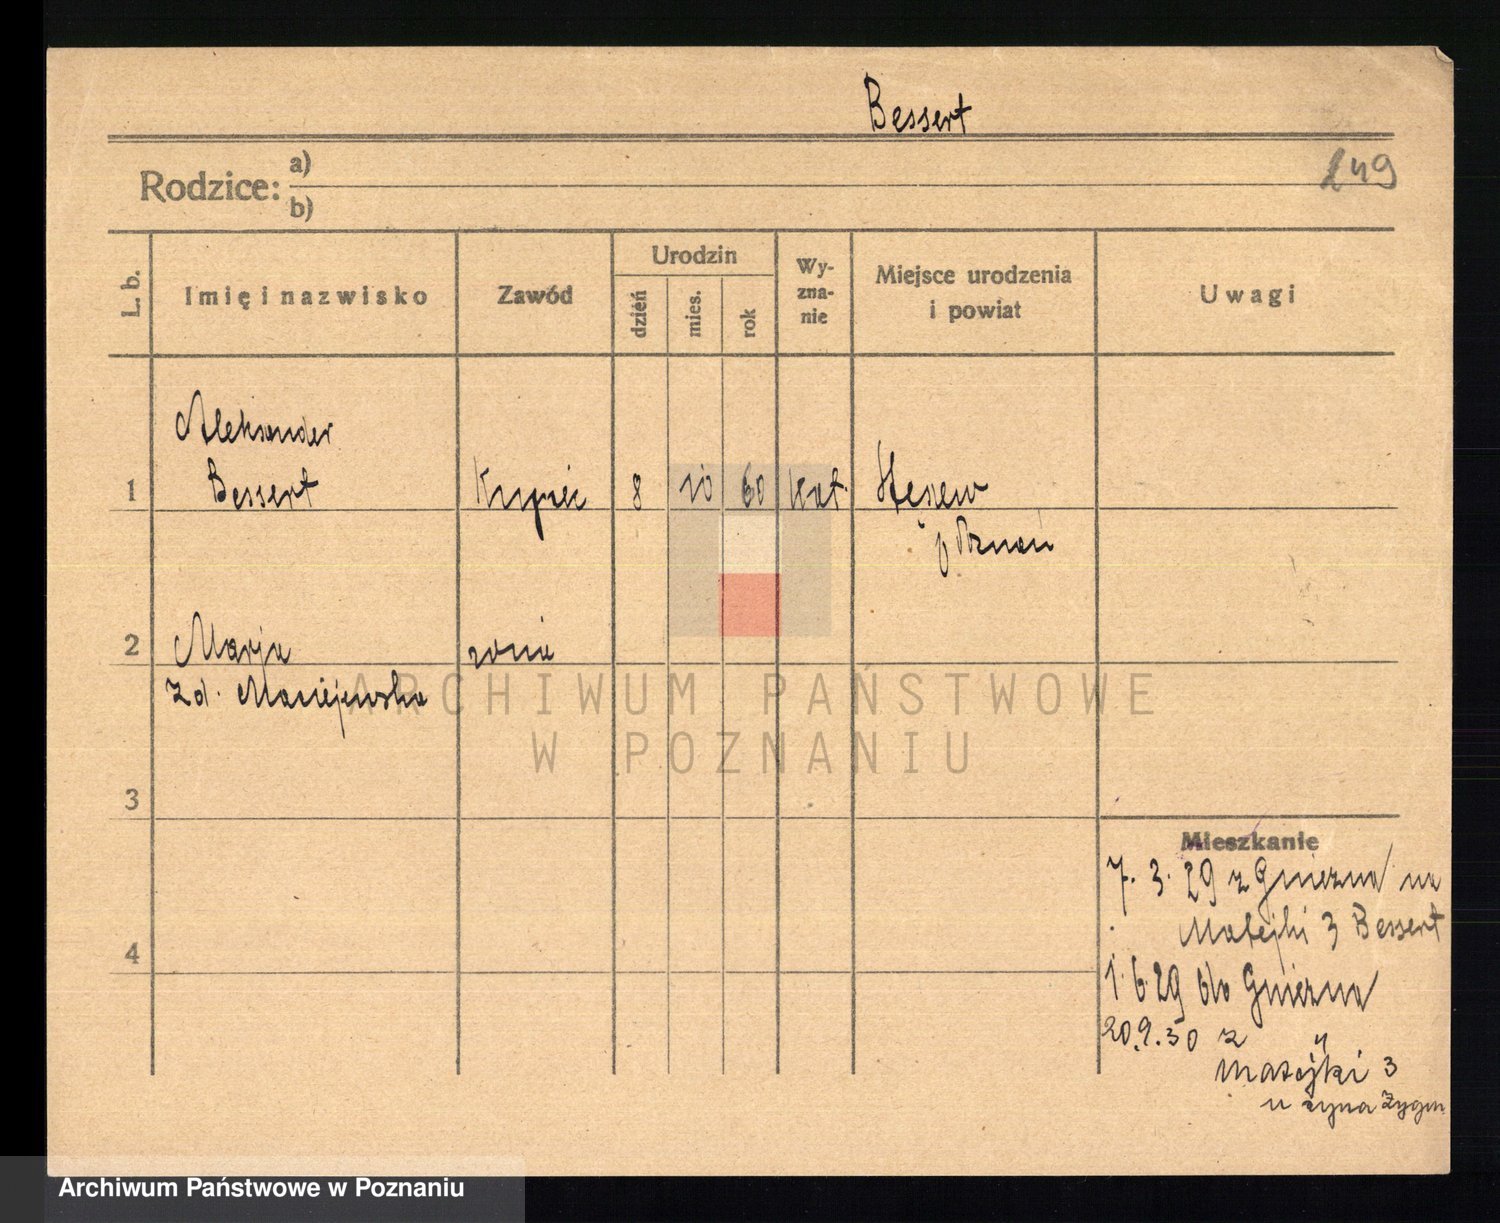 Bessert
249
Rodzice: a)
b)
L. b. Imię i nazwisko Zawód Urodzin dzień mies. rok Wy-zna-nie Miejsce urodzenia i powiat Uwagi
Aleksander
1 Bessert Kupiec 8 10 60 kat. Stęszew
p Poznań
2 Marja żona
z d. Maciejewska
ARCHIWUM PAŃSTWOWE
W POZNANIU
3
Mieszkanie
7. 3. 29 z Gniezna na
Matejki 3 Bessert
4
1. 6. 29 do Gniezna
20.9.30 z "
Matejki 3
u syna Zygm
Archiwum Państwowe w Poznaniu